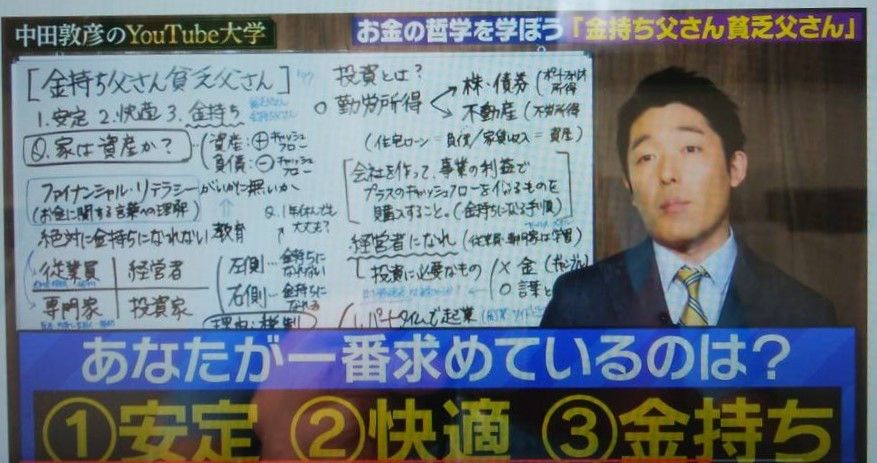 中田敦彦のYouTube大学
お金の哲学を学ぼう「金持ち父さん貧乏父さん」
[金持ち父さん貧乏父さん] '97
1.安定 2.快適 3.金持ち
Q.家は資産か?
資産:⊕キャッシュフロー
負債:⊖キャッシュフロー
ファイナンシャル・リテラシーがいかに無いか
(お金に関する言葉への理解)
Q.1年休んでも大丈夫?
絶対に金持ちになれない教育
従業員 経営者
専門家 投資家
左側…金持ちになれない
右側…金持ちになれる
理由=税制
投資とは?
勤労所得
株・債券(ポートフォリオ所得
不動産(不労所得
(住宅ローン=負債/家賃収入=資産)
会社を作って、事業の利益で
プラスのキャッシュフローを作るものを
購入すること。(金持ちになる手順)
経営者になれ
投資に必要なもの
× 金(ギャンブル
○ 言葉と
1.パートタイムで起業
あなたが一番求めているのは?
①安定 ②快適 ③金持ち